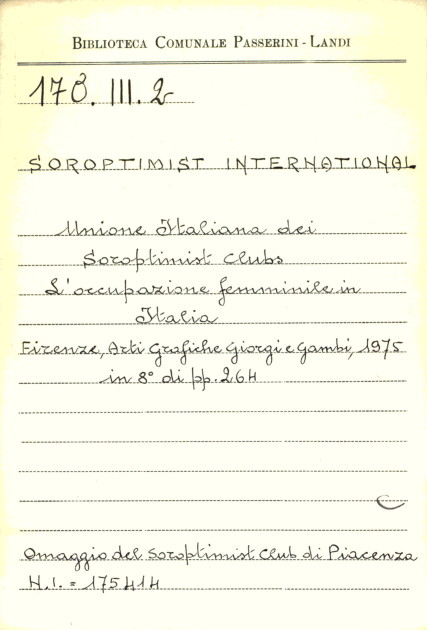 Biblioteca Comunale Passerini - Landi
178. III. 2
SOROPTIMIST INTERNATIONAL
Unione Italiana dei
Soroptimist Clubs
L'occupazione femminile in
Italia
Firenze, Arti Grafiche Giorgi e Gambi, 1975
in 8° di pp. 264
Omaggio del Soroptimist Club di Piacenza
N.I. = 175414